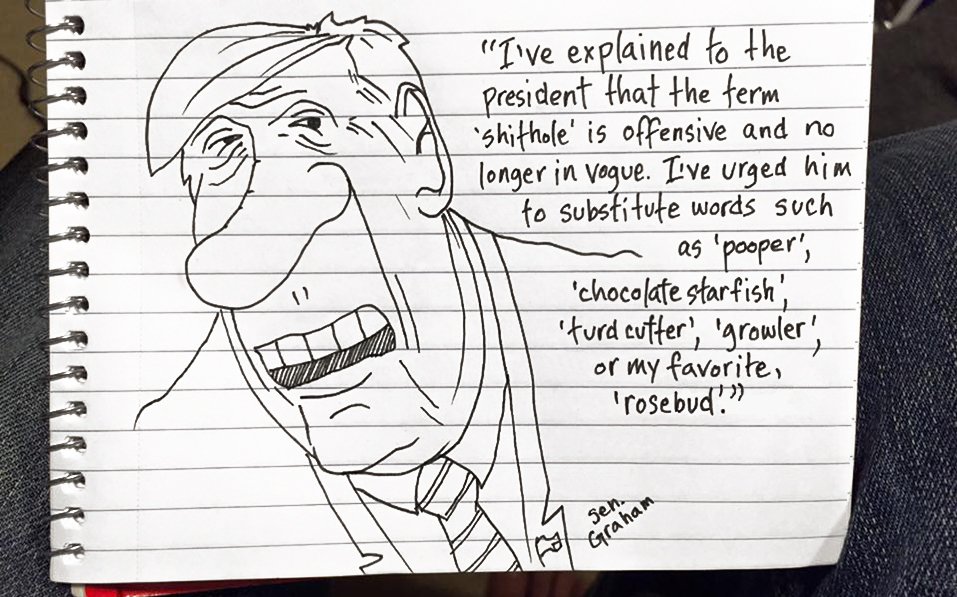 "I've explained to the
president that the term
'shithole' is offensive and no
longer in vogue. I've urged him
to substitute words such
as 'pooper',
'chocolate starfish',
'turd cutter', 'growler',
or my favorite,
'rosebud'."
Sen.
Graham